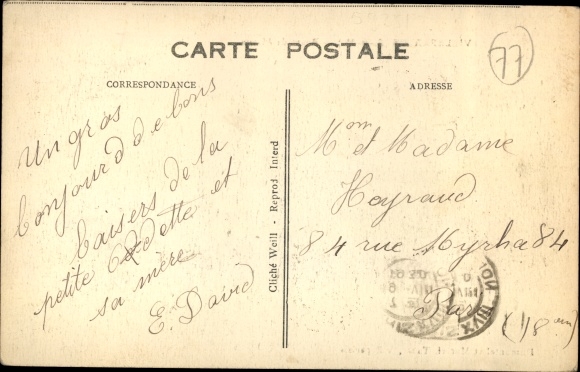 CARTE POSTALE
77
CORRESPONDANCE
ADRESSE
Un gros
bonjour d de bons
baisers de la
petite Odette et
sa mère
E. David
Cliché Weill - Reprod Interd
Mom et Madame
Heyraud
84 rue Myrha 84
Paris
(18 em)